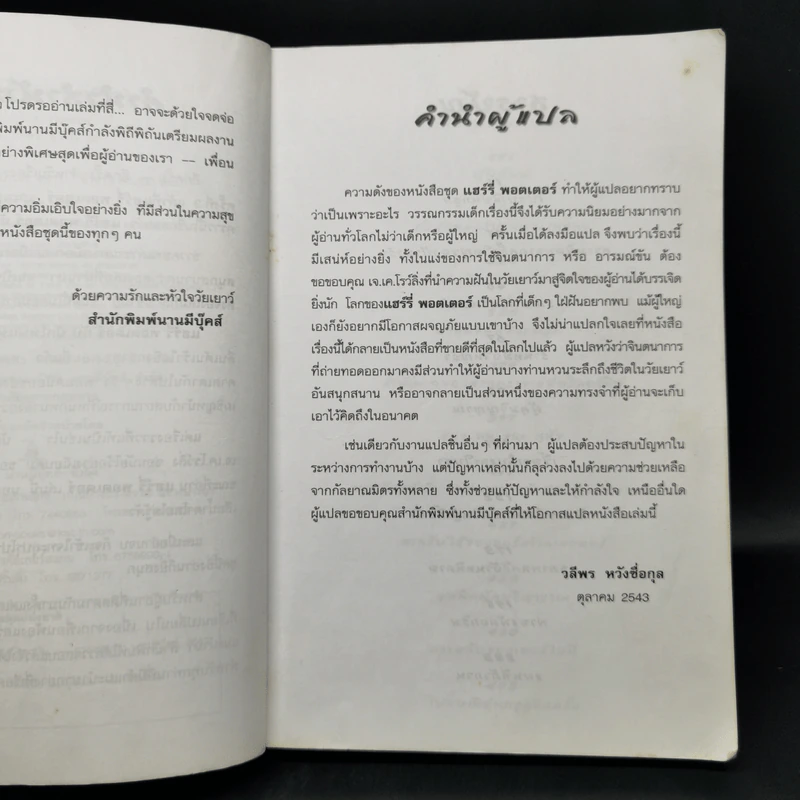 โปรดรออ่านเล่มที่สี่... อาจจะด้วยใจจดจ่อ
พิมพ์นานมีบุ๊คส์กำลังพิถีพิถันเตรียมผลงาน
ย่างพิเศษสุดเพื่อผู้อ่านของเรา -- เพื่อน
ความอิ่มเอิบใจอย่างยิ่ง ที่มีส่วนในความสุข
หนังสือชุดนี้ของทุกๆ คน
ด้วยความรักและหัวใจวัยเยาว์
สำนักพิมพ์นานมีบุ๊คส์
คำนำผู้แปล
ความดังของหนังสือชุด แฮร์รี่ พอตเตอร์ ทำให้ผู้แปลอยากทราบ
ว่าเป็นเพราะอะไร วรรณกรรมเด็กเรื่องนี้จึงได้รับความนิยมอย่างมากจาก
ผู้อ่านทั่วโลกไม่ว่าเด็กหรือผู้ใหญ่ ครั้นเมื่อได้ลงมือแปล จึงพบว่าเรื่องนี้
มีเสน่ห์อย่างยิ่ง ทั้งในแง่ของการใช้จินตนาการ หรือ อารมณ์ขัน ต้อง
ขอขอบคุณ เจ.เค.โรว์ลิ่งที่นำความฝันในวัยเยาว์มาสู่จิตใจของผู้อ่านได้บรรเจิด
ยิ่งนัก โลกของแฮร์รี่ พอตเตอร์ เป็นโลกที่เด็กๆ ใฝ่ฝันอยากพบ แม้ผู้ใหญ่
เองก็ยังอยากมีโอกาสผจญภัยแบบเขาบ้าง จึงไม่น่าแปลกใจเลยที่หนังสือ
เรื่องนี้ได้กลายเป็นหนังสือที่ขายดีที่สุดในโลกไปแล้ว ผู้แปลหวังว่าจินตนาการ
ที่ถ่ายทอดออกมาคงมีส่วนทำให้ผู้อ่านบางท่านหวนระลึกถึงชีวิตในวัยเยาว์
อันสนุกสนาน หรืออาจกลายเป็นส่วนหนึ่งของความทรงจำที่ผู้อ่านจะเก็บ
เอาไว้คิดถึงในอนาคต
เช่นเดียวกับงานแปลชิ้นอื่นๆ ที่ผ่านมา ผู้แปลต้องประสบปัญหาใน
ระหว่างการทำงานบ้าง แต่ปัญหาเหล่านั้นก็ลุล่วงลงไปด้วยความช่วยเหลือ
จากกัลยาณมิตรทั้งหลาย ซึ่งทั้งช่วยแก้ปัญหาและให้กำลังใจ เหนืออื่นใด
ผู้แปลขอขอบคุณสำนักพิมพ์นานมีบุ๊คส์ที่ให้โอกาสแปลหนังสือเล่มนี้
วลีพร หวังซื่อกุล
ตุลาคม 2543